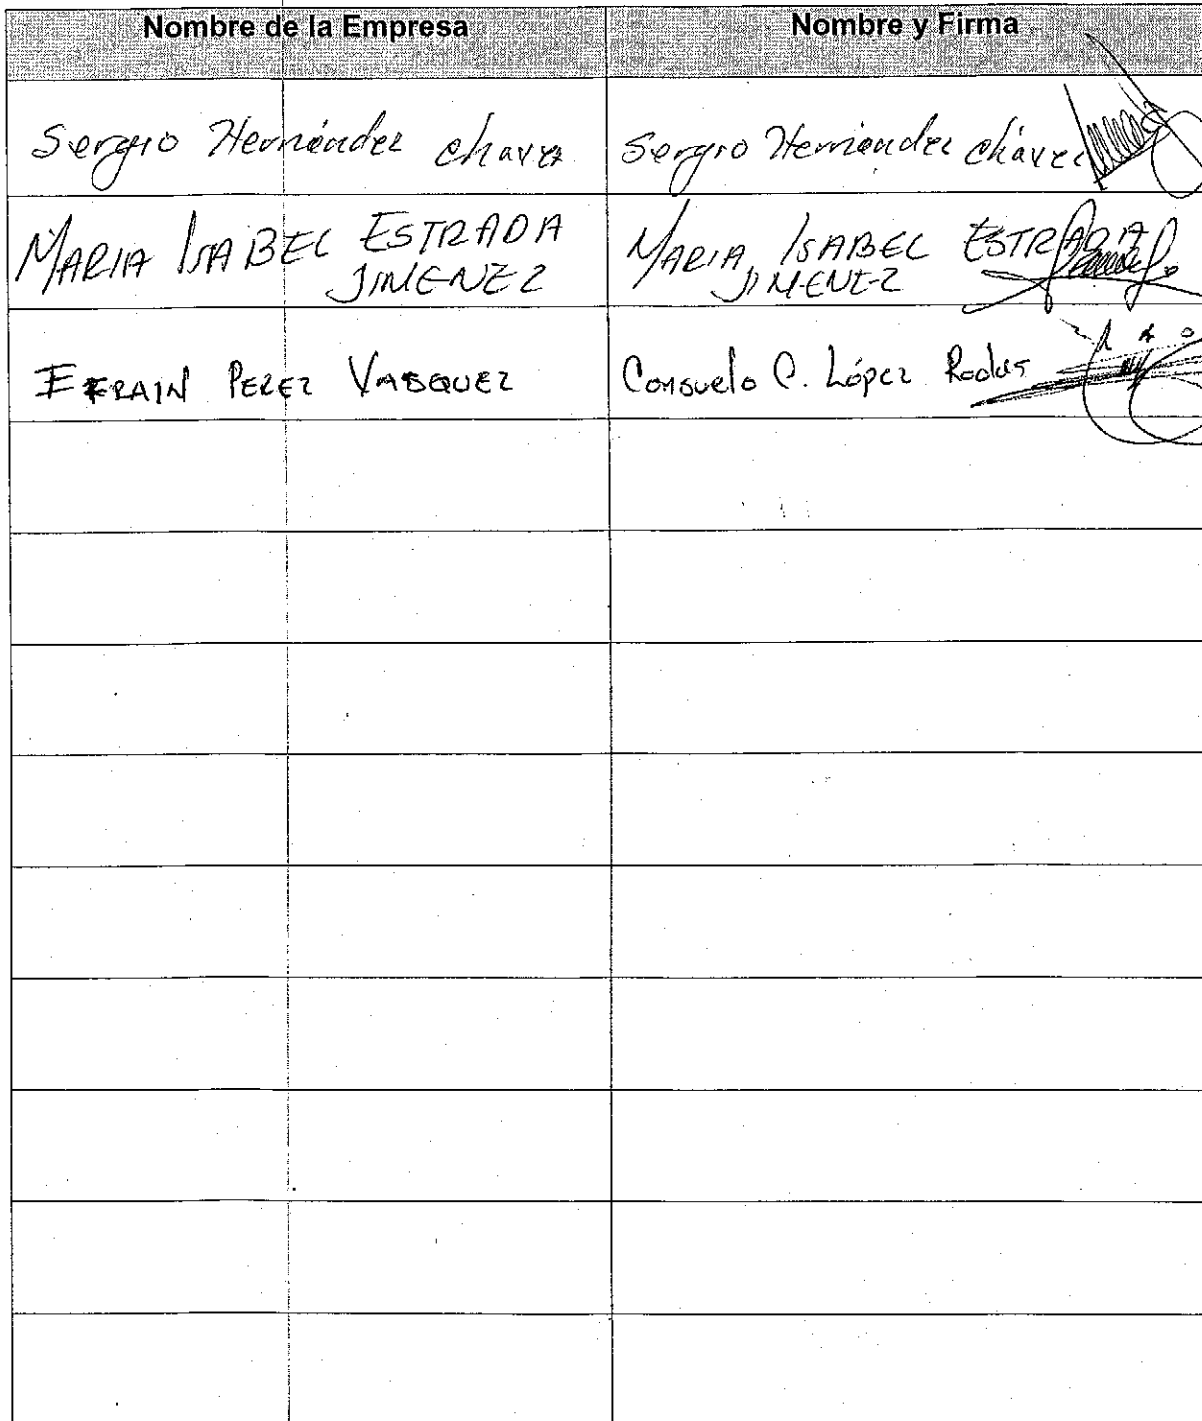 Nombre de la Empresa Nombre y Firma
Sergio Hernández chavez Sergio Hernández chávez
MARIA ISABEL ESTRADA MARIA ISABEL ESTRADA
JIMENEZ JIMENEZ
EFRAIN PEREZ VASQUEZ Consuelo C. López Rodas